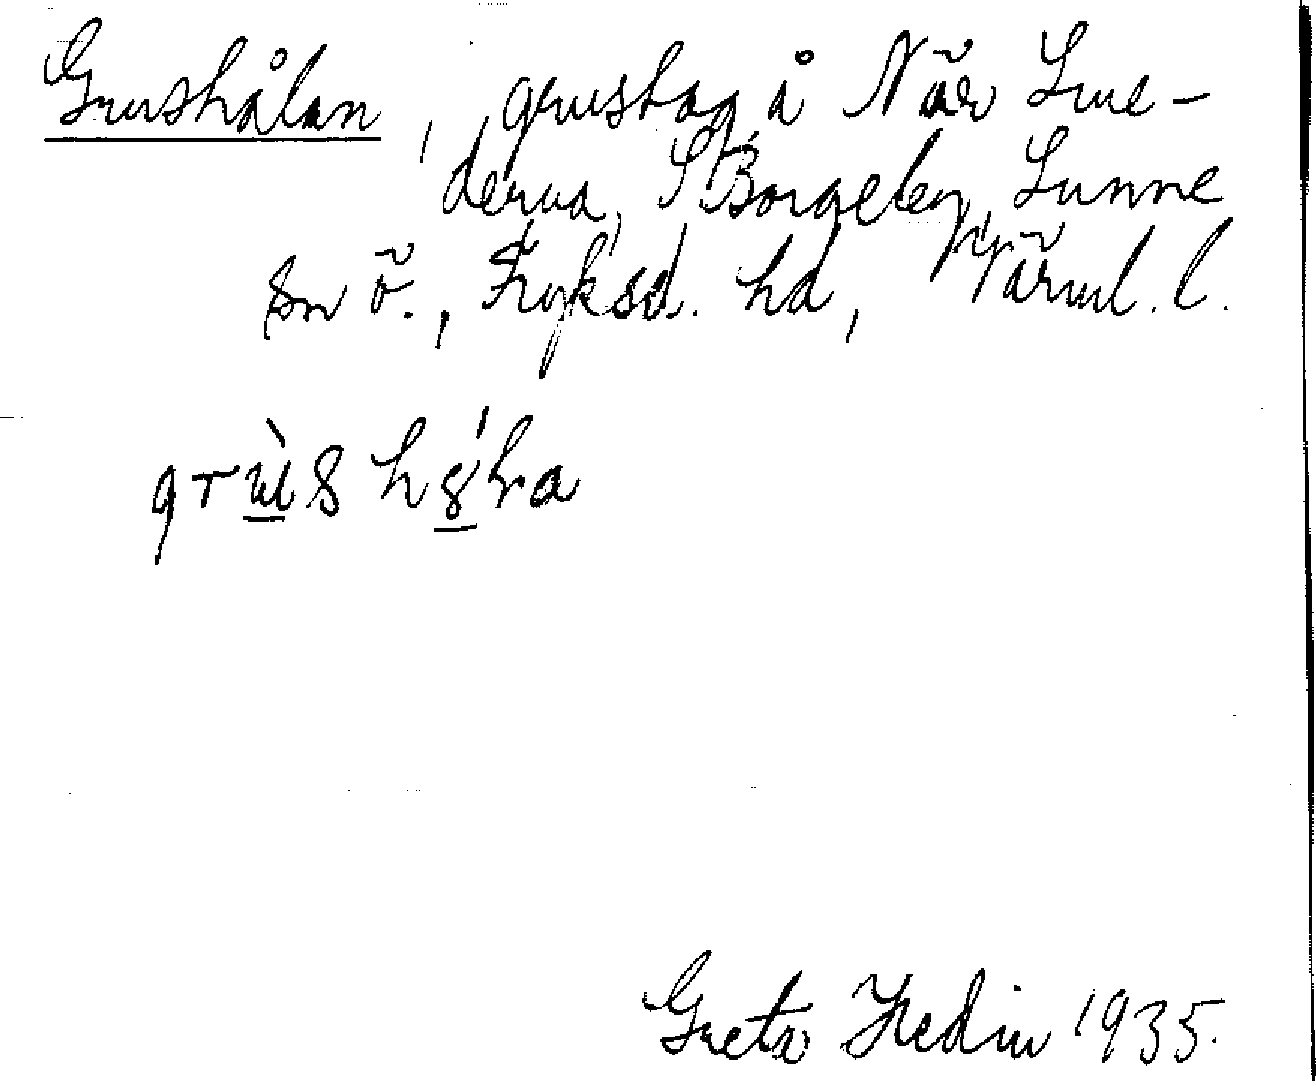 Grushålan, grustag å När Lun-
derna, S Borgeby, Sunne
sn ö., Fryksd. hd, Värml. l.
Greta Hedin 1935.